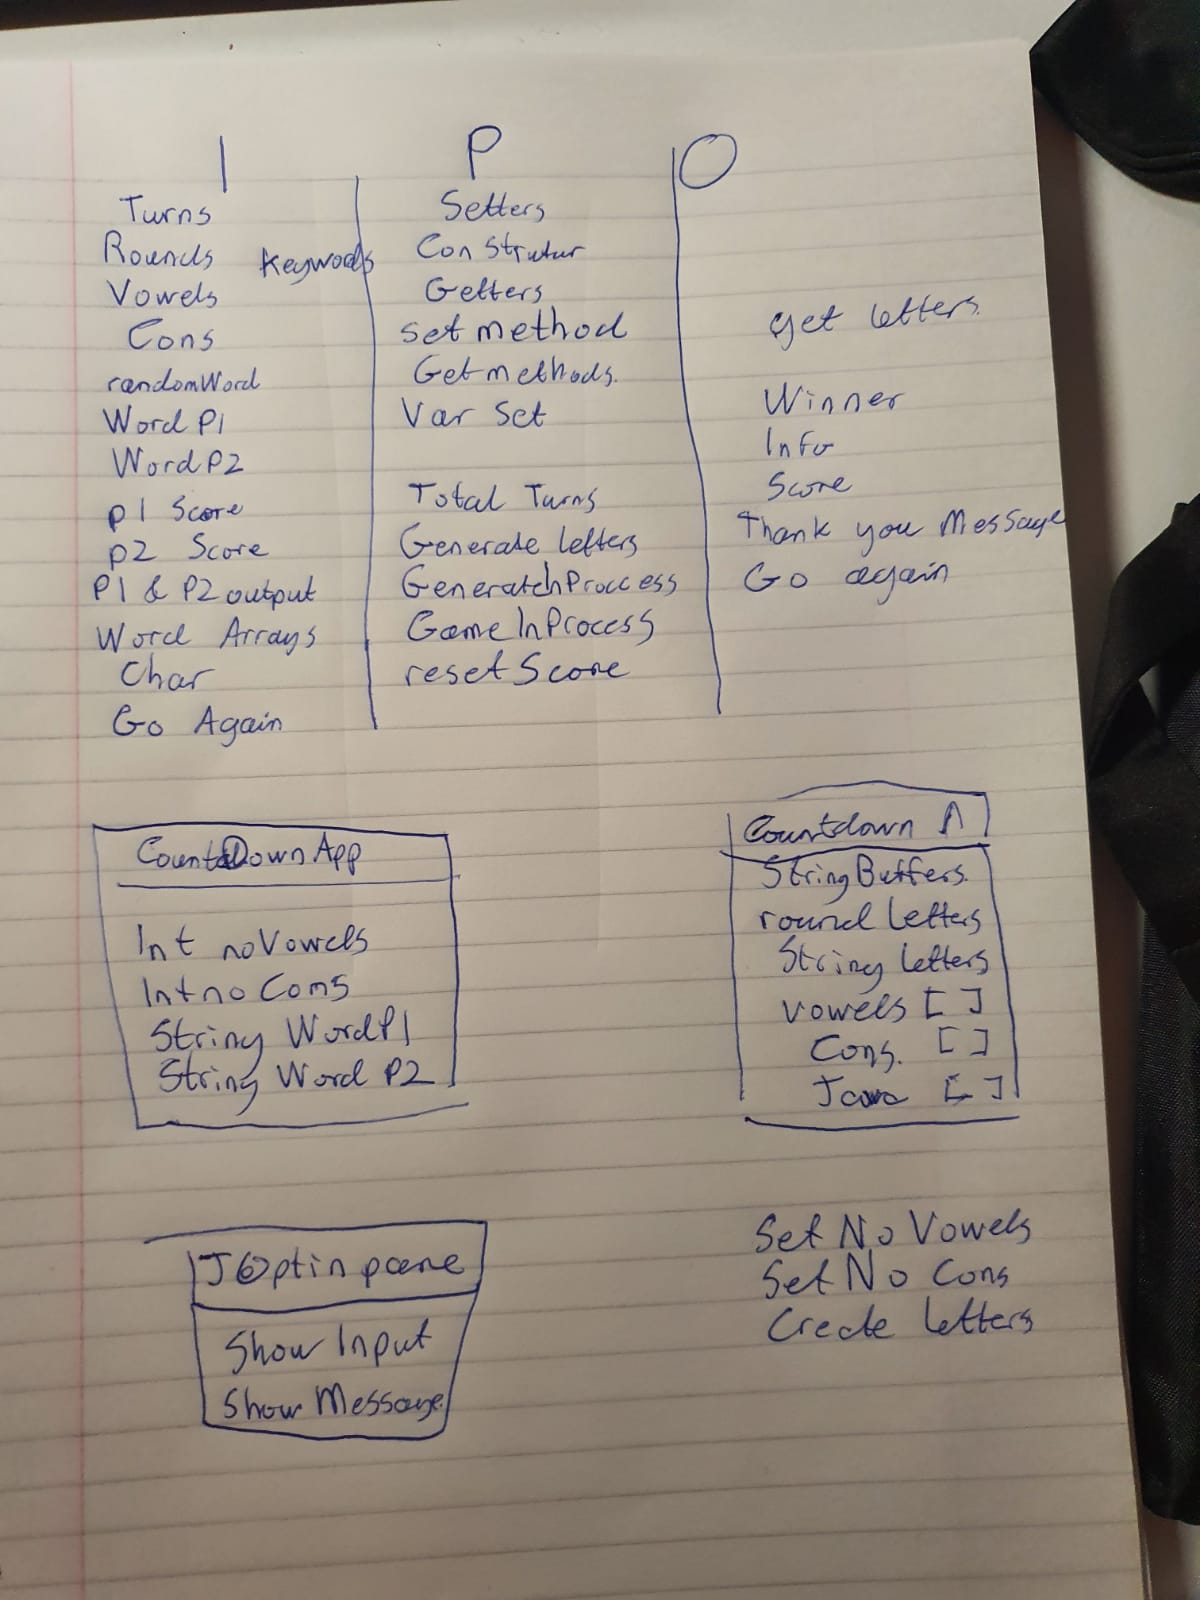 I
Turns
Rounds
Keywords
Vowels
Cons
randomWord
Word P1
Word P2
P1 Score
P2 Score
P1 & P2 output
Word Arrays
Char
Go Again
P
Setters
Getters
Set method
Get methods.
Var Set
Total Turns
Generate letters
GameInProcess
resetScore
O
get letters
Winner
Info
Score
Thank you Message
Go again
CountDown App
Int noVowels
Int no Cons
String WordP1
String Word P2
Countdown
StringBuffers.
round letters
String letters
vowels [ ]
Cons. [ ]
Java [ ]
JOptin pane
Show Input
Show Message
Set No Vowels
Set No Cons
Create letters